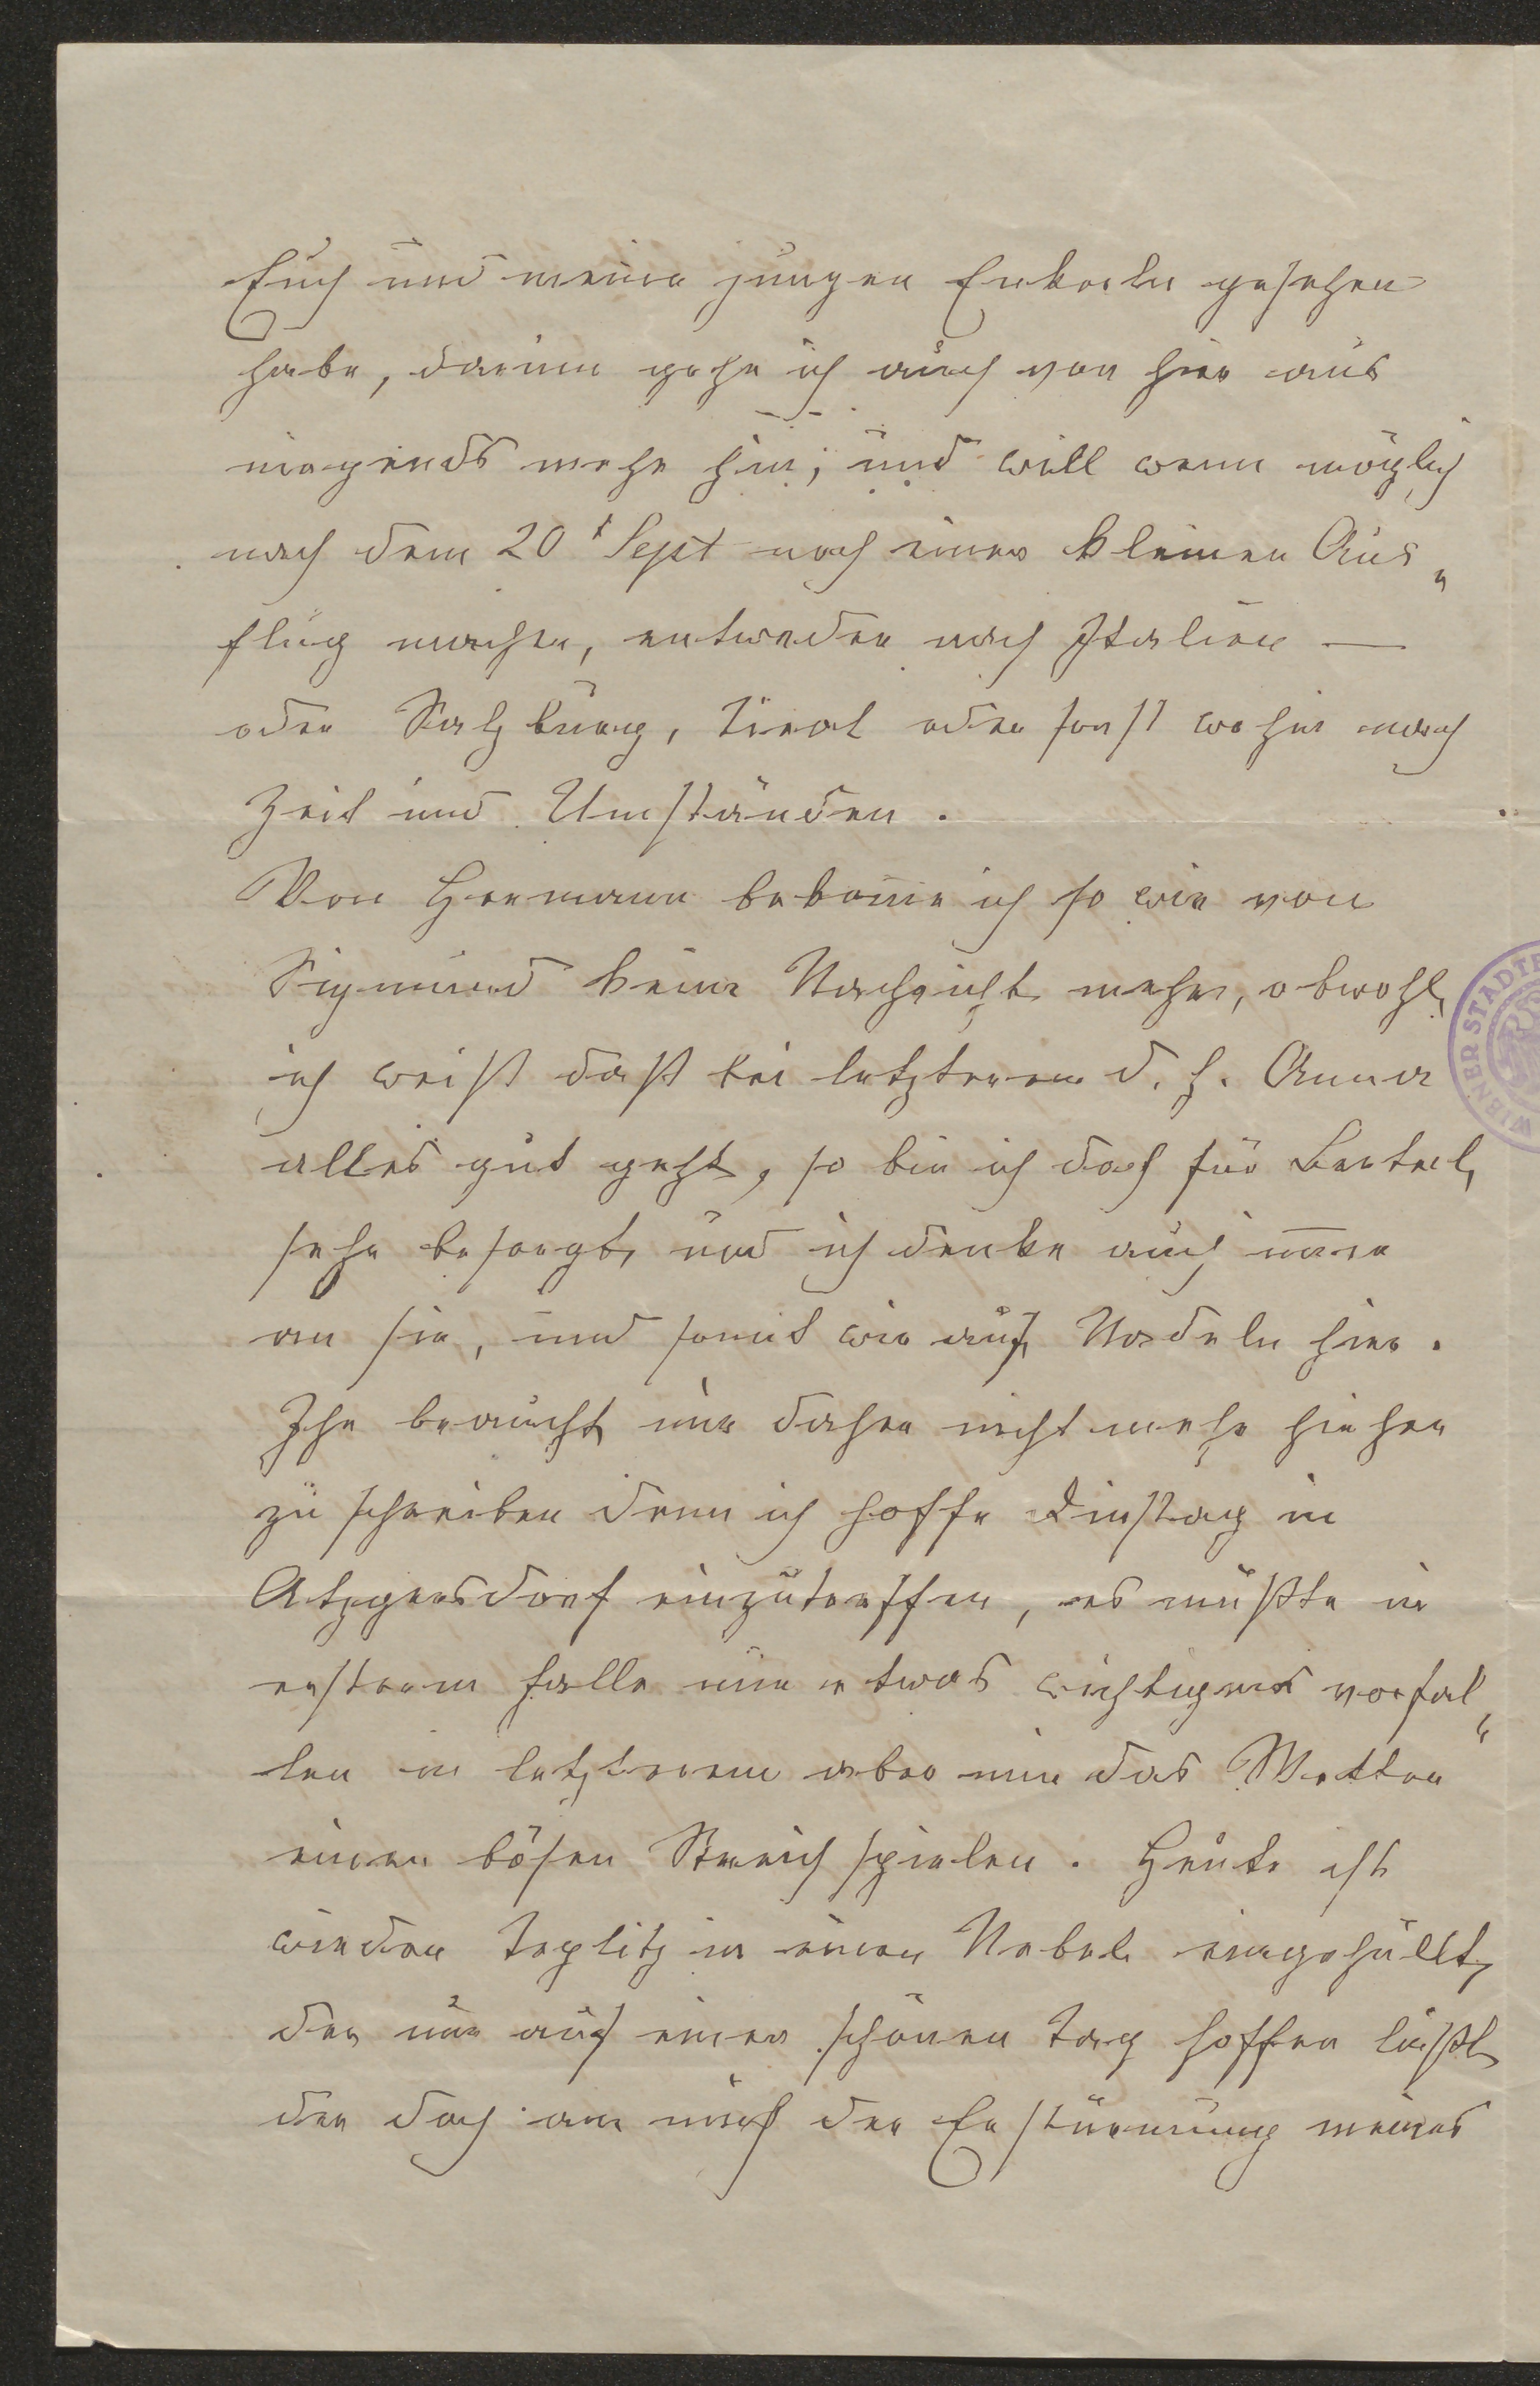 Euch und meine jungen Enkerln gesehen
habe, darum gehe ich auch von hier aus
nirgends mehr hin; und will wenn möglich
nach dem 20t Sept noch einen kleinen Aus„
flug machen, entweder nach Italien —
oder Salzburg, Tirol oder sonst wohin nach
Zeit und Umständen.
Von Hermann bekom̅e ich so wie von
Sigmund keine Nachricht mehr, obwohl
ich weißt daß bei letzterem d. h. Anna
alles gut geht, so bin ich doch für
sehr besorgt, und ich denke auch im̅er
an sie, und somit wie auf Nadeln hier.
Ihr braucht mir daher nicht mehr hieher
zu schreiben denn ich hoffe Dinstag in
Atzgersdorf einzutreffen, es müßte in
ersterem Falle nur etwas wichtiges vorfal„
len in letzterem aber mir das Wetter
einen bösen Streich spielen. Heute ist
wieder Teplitz in einen Nebel eingehüllt,
der nur auf einen schönen Tag hoffen läßt
der doch an mich der Erstürmung meines
WIENER STÄDTI